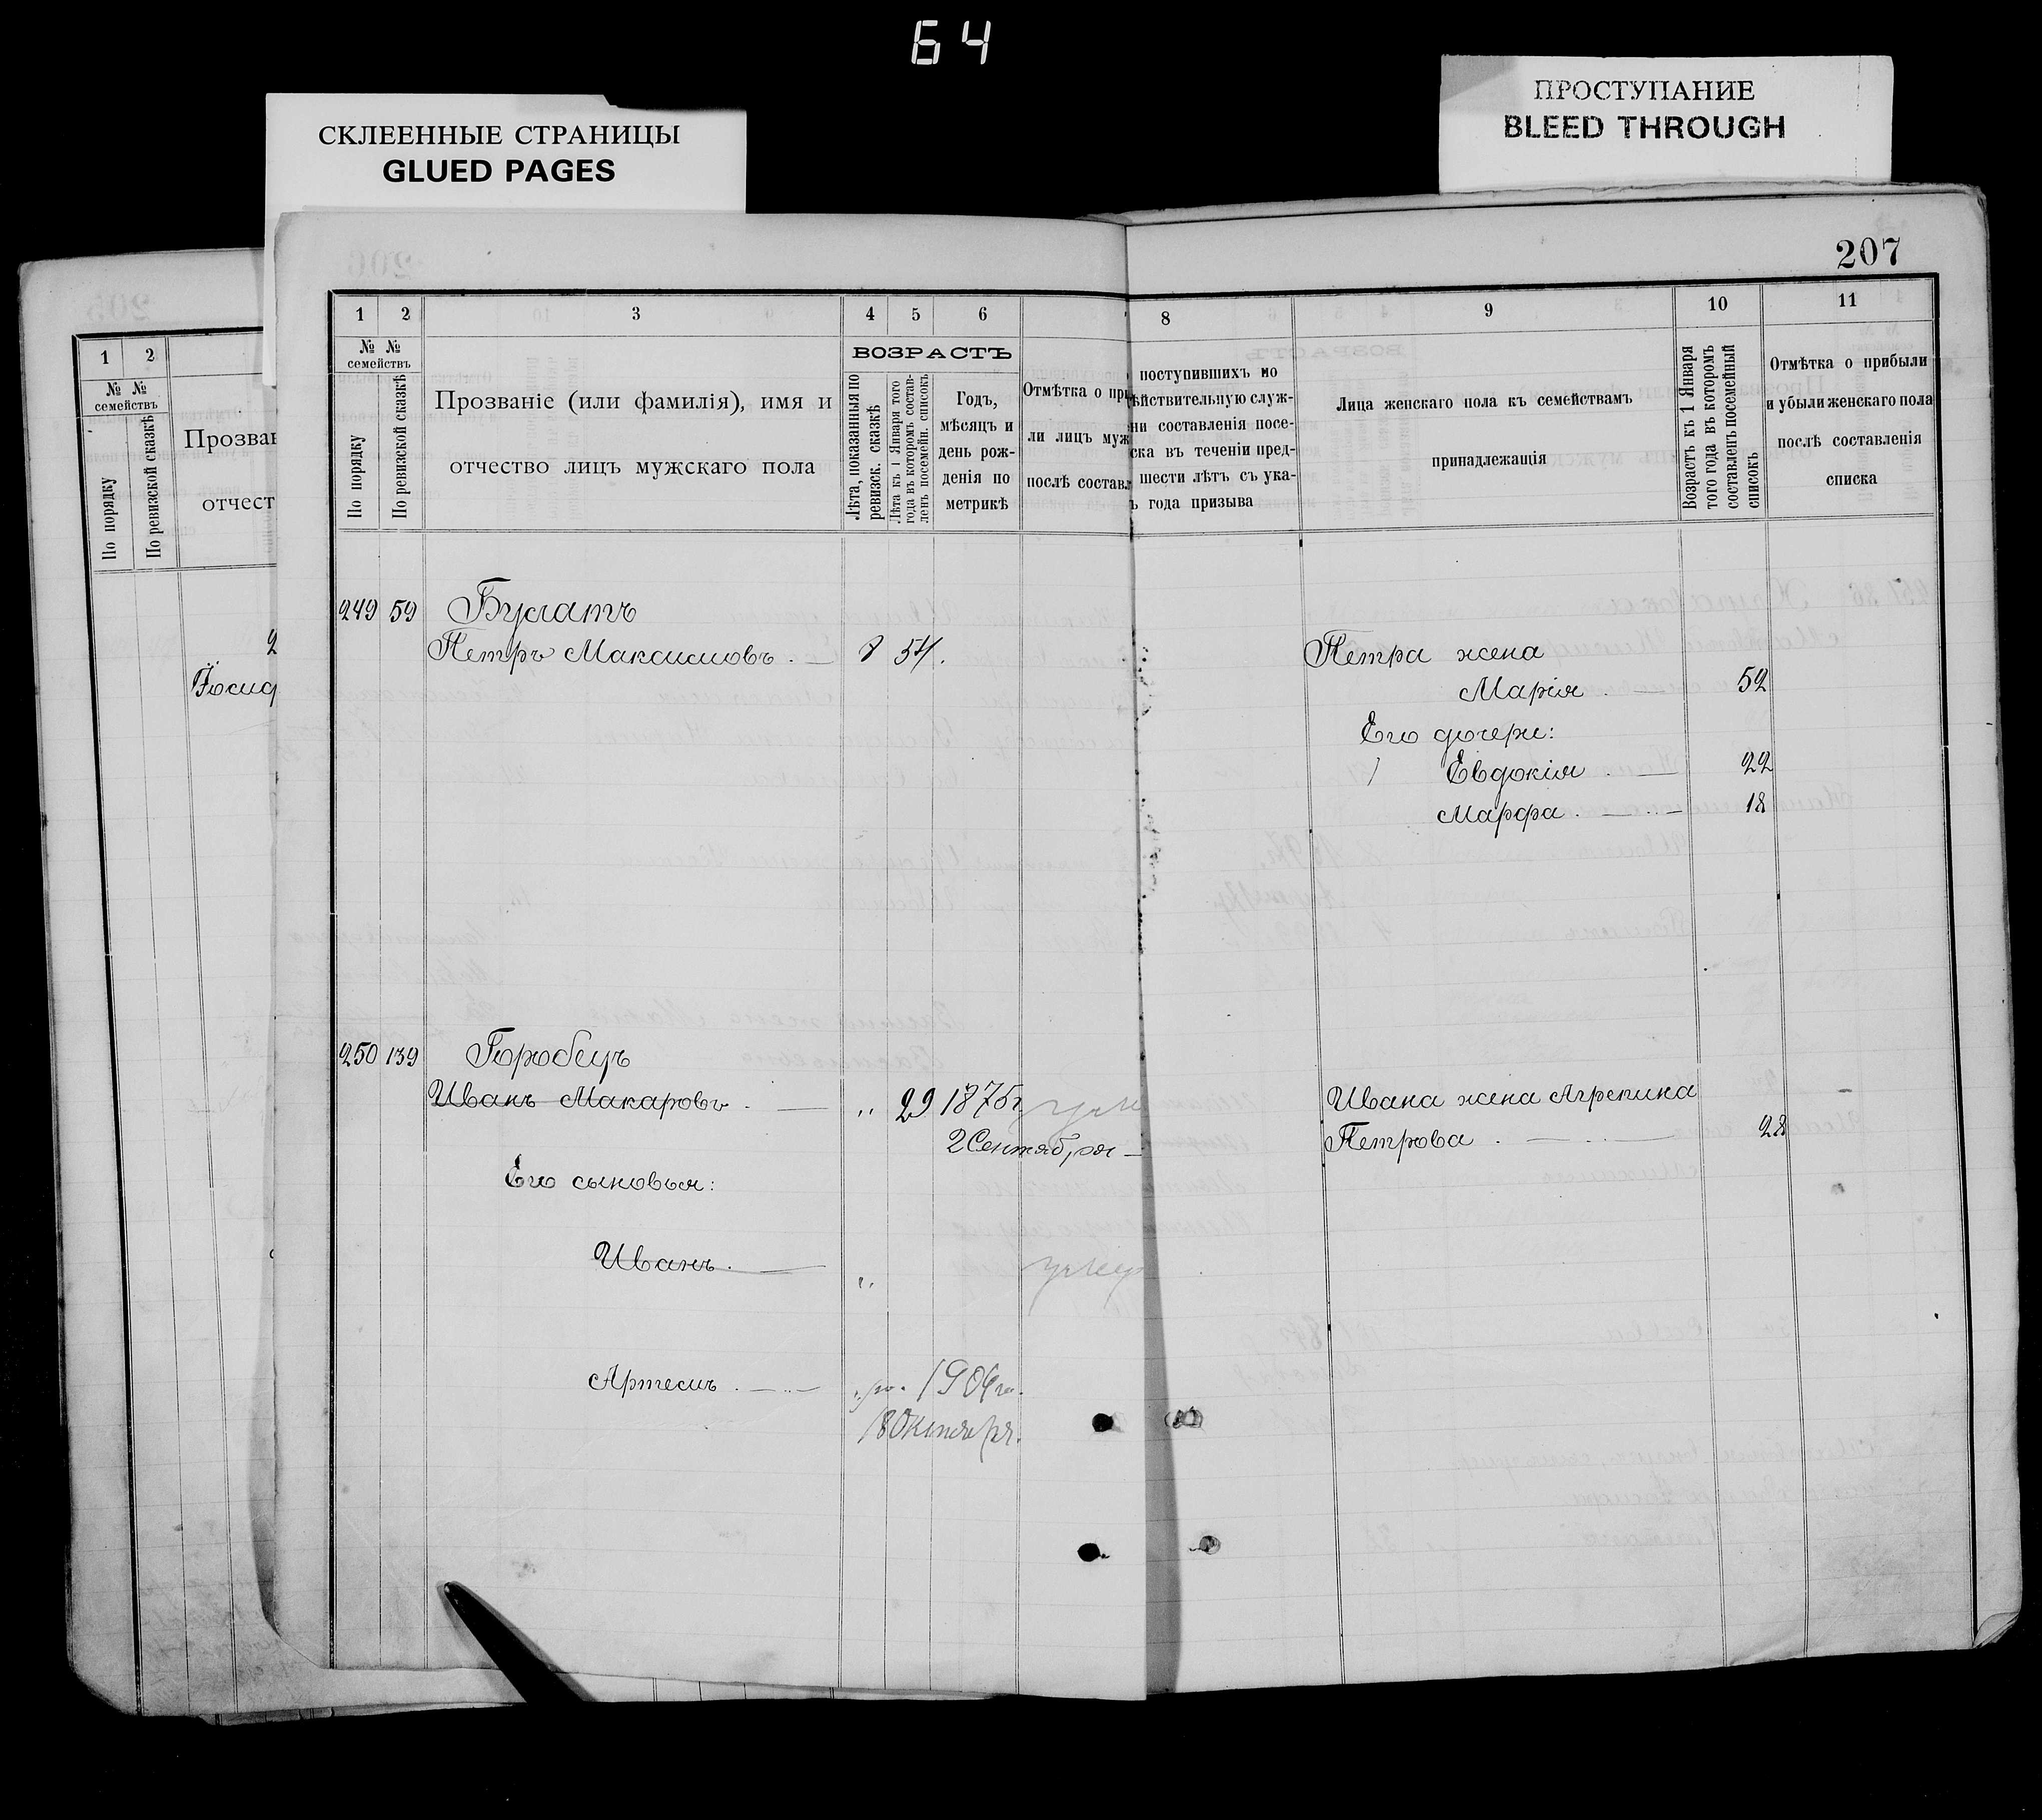 64
СКЛЕЕННЫЕ СТРАНИЦЫ
GLUED PAGES
ПРОСТУПАНИЕ
BLEED THROUGH
207
1 2
№ №
семействъ
По порядку
По ревизской сказкѣ
Прозван
отчест
2
Іосиф
1 2 3 4 5 6
№ №
семействъ
По порядку
По ревизской сказкѣ
Прозваніе (или фамилія), имя и
отчество лицъ мужскаго пола
ВОЗРАСТЪ
Лѣта, показанныя по
ревизск. сказкѣ
Лѣта къ 1 Января того
года въ которомъ состав-
ленъ посемейн. списокъ
Годъ,
мѣсяцъ и
день рож-
денія по
метрикѣ
Отмѣтка о при
ли лицъ муж
послѣ составл
8 9 10 11
поступившихъ но
ѣйствительную служ-
ни составленія посе-
ска въ теченіи пред-
шести лѣтъ съ ука-
ъ года призыва
Лица женскаго пола къ семействамъ
принадлежащія
Возрастъ къ 1 Января
того года въ которомъ
составленъ посемейный
списокъ
Отмѣтка о прибыли
и убыли женскаго пола
послѣ составленія
списка
249 59 Булатъ
Петръ Максимовъ. 54.
Петра жена
Марія 52
Его дочери:
Евдокія 22
Марфа 18
250 139 Горобецъ
Иванъ Макаровъ. 29 1875г
2 Сентября
Ивана жена Агрепина
Петрова 28
Его сыновья:
Иванъ.
умер
Артемъ. 1904 г.
18 Октября.